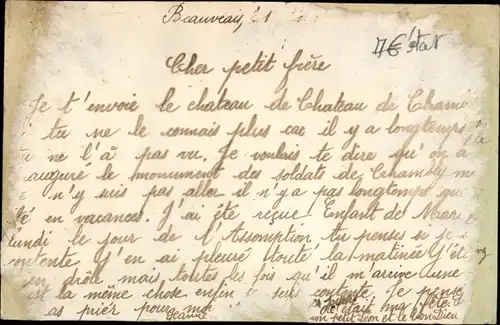 Beauvais, 21
7€ état
Cher petit frère
Je t'envoie le chateau de Chateau de Cham
tu ne le connais plus car il y a longtemps
tu ne l'à pas vu. Je voulais te dire qu'on a
auguré le monument des soldats de Chambly m
e n'y suis pas aller il n'y a pas longtemps que
té en vacances. J'ai été reçue Enfant de Marie
lundi le jour de l'Assomption tu penses si je s
contente J'en ai pleuré toute la matinée J'étais
drôle mais toutes les fois qu'il m'arrive une
est la même chose enfin je suis contente Je pense
as prier pour moi
c'était ma fête
mon petit Léon et le bon Dieu
Jeanne